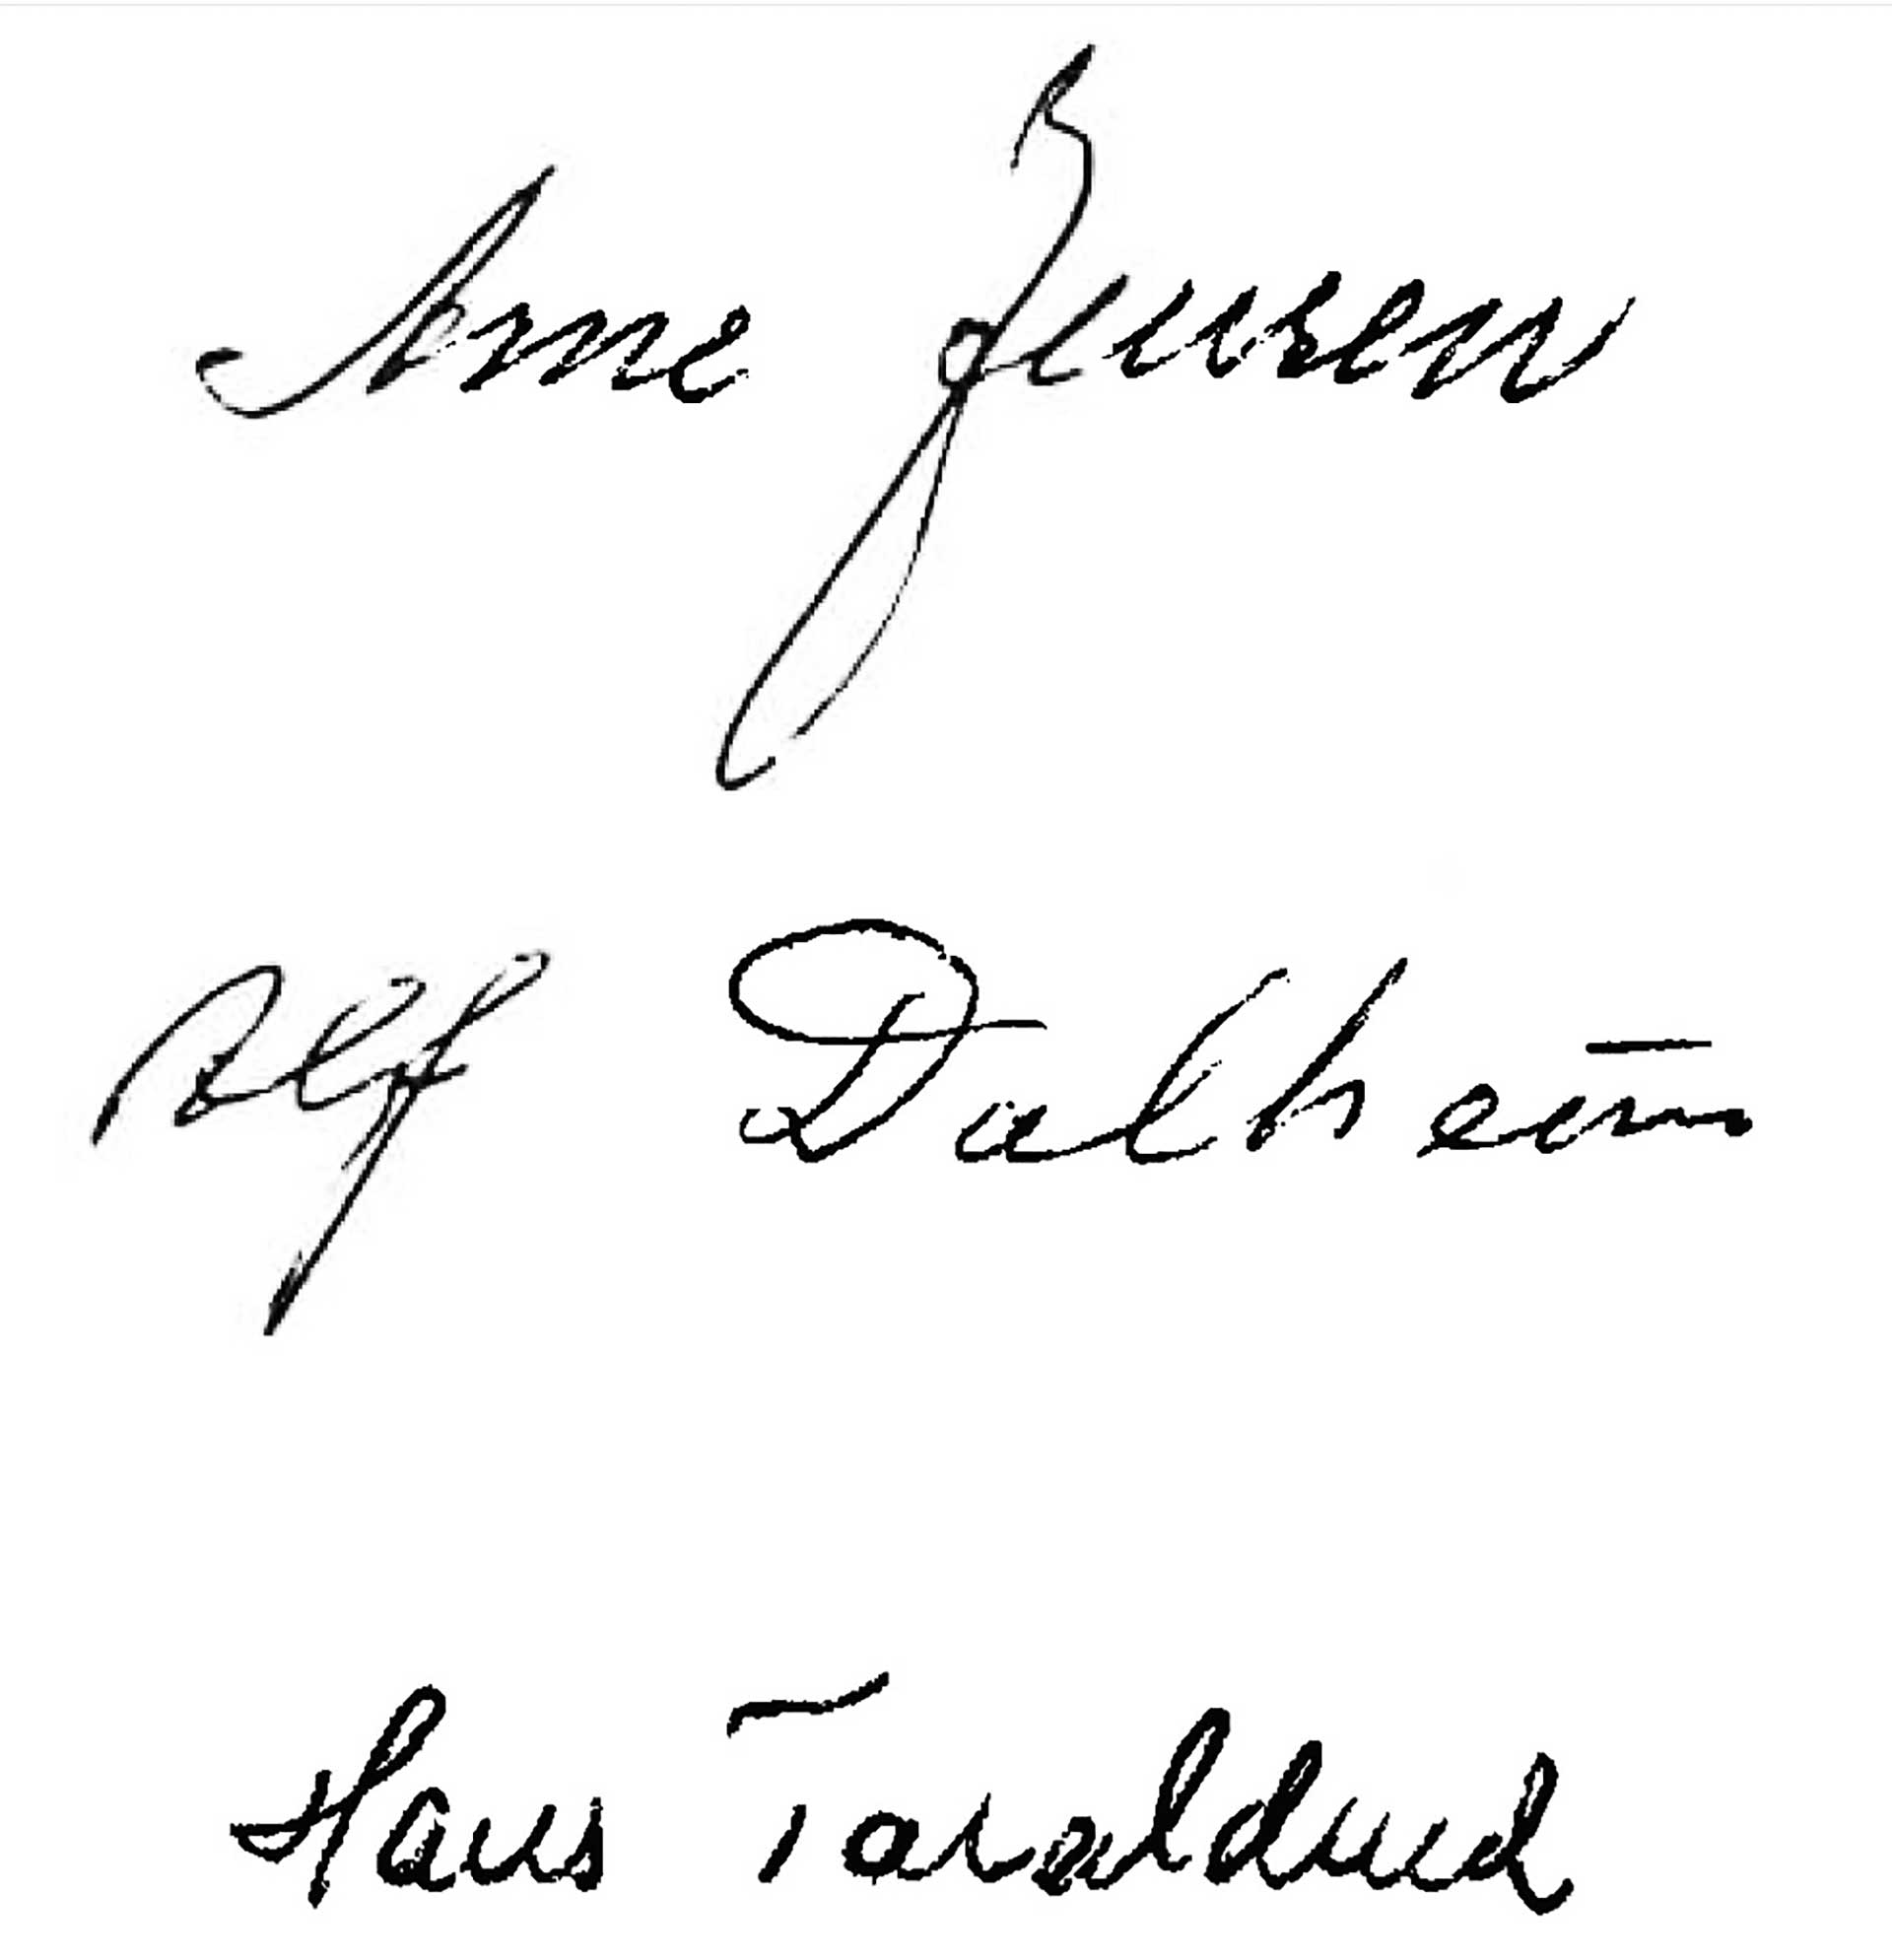 Arne Jensen
Alf Dalheim
Hans Taraldrud